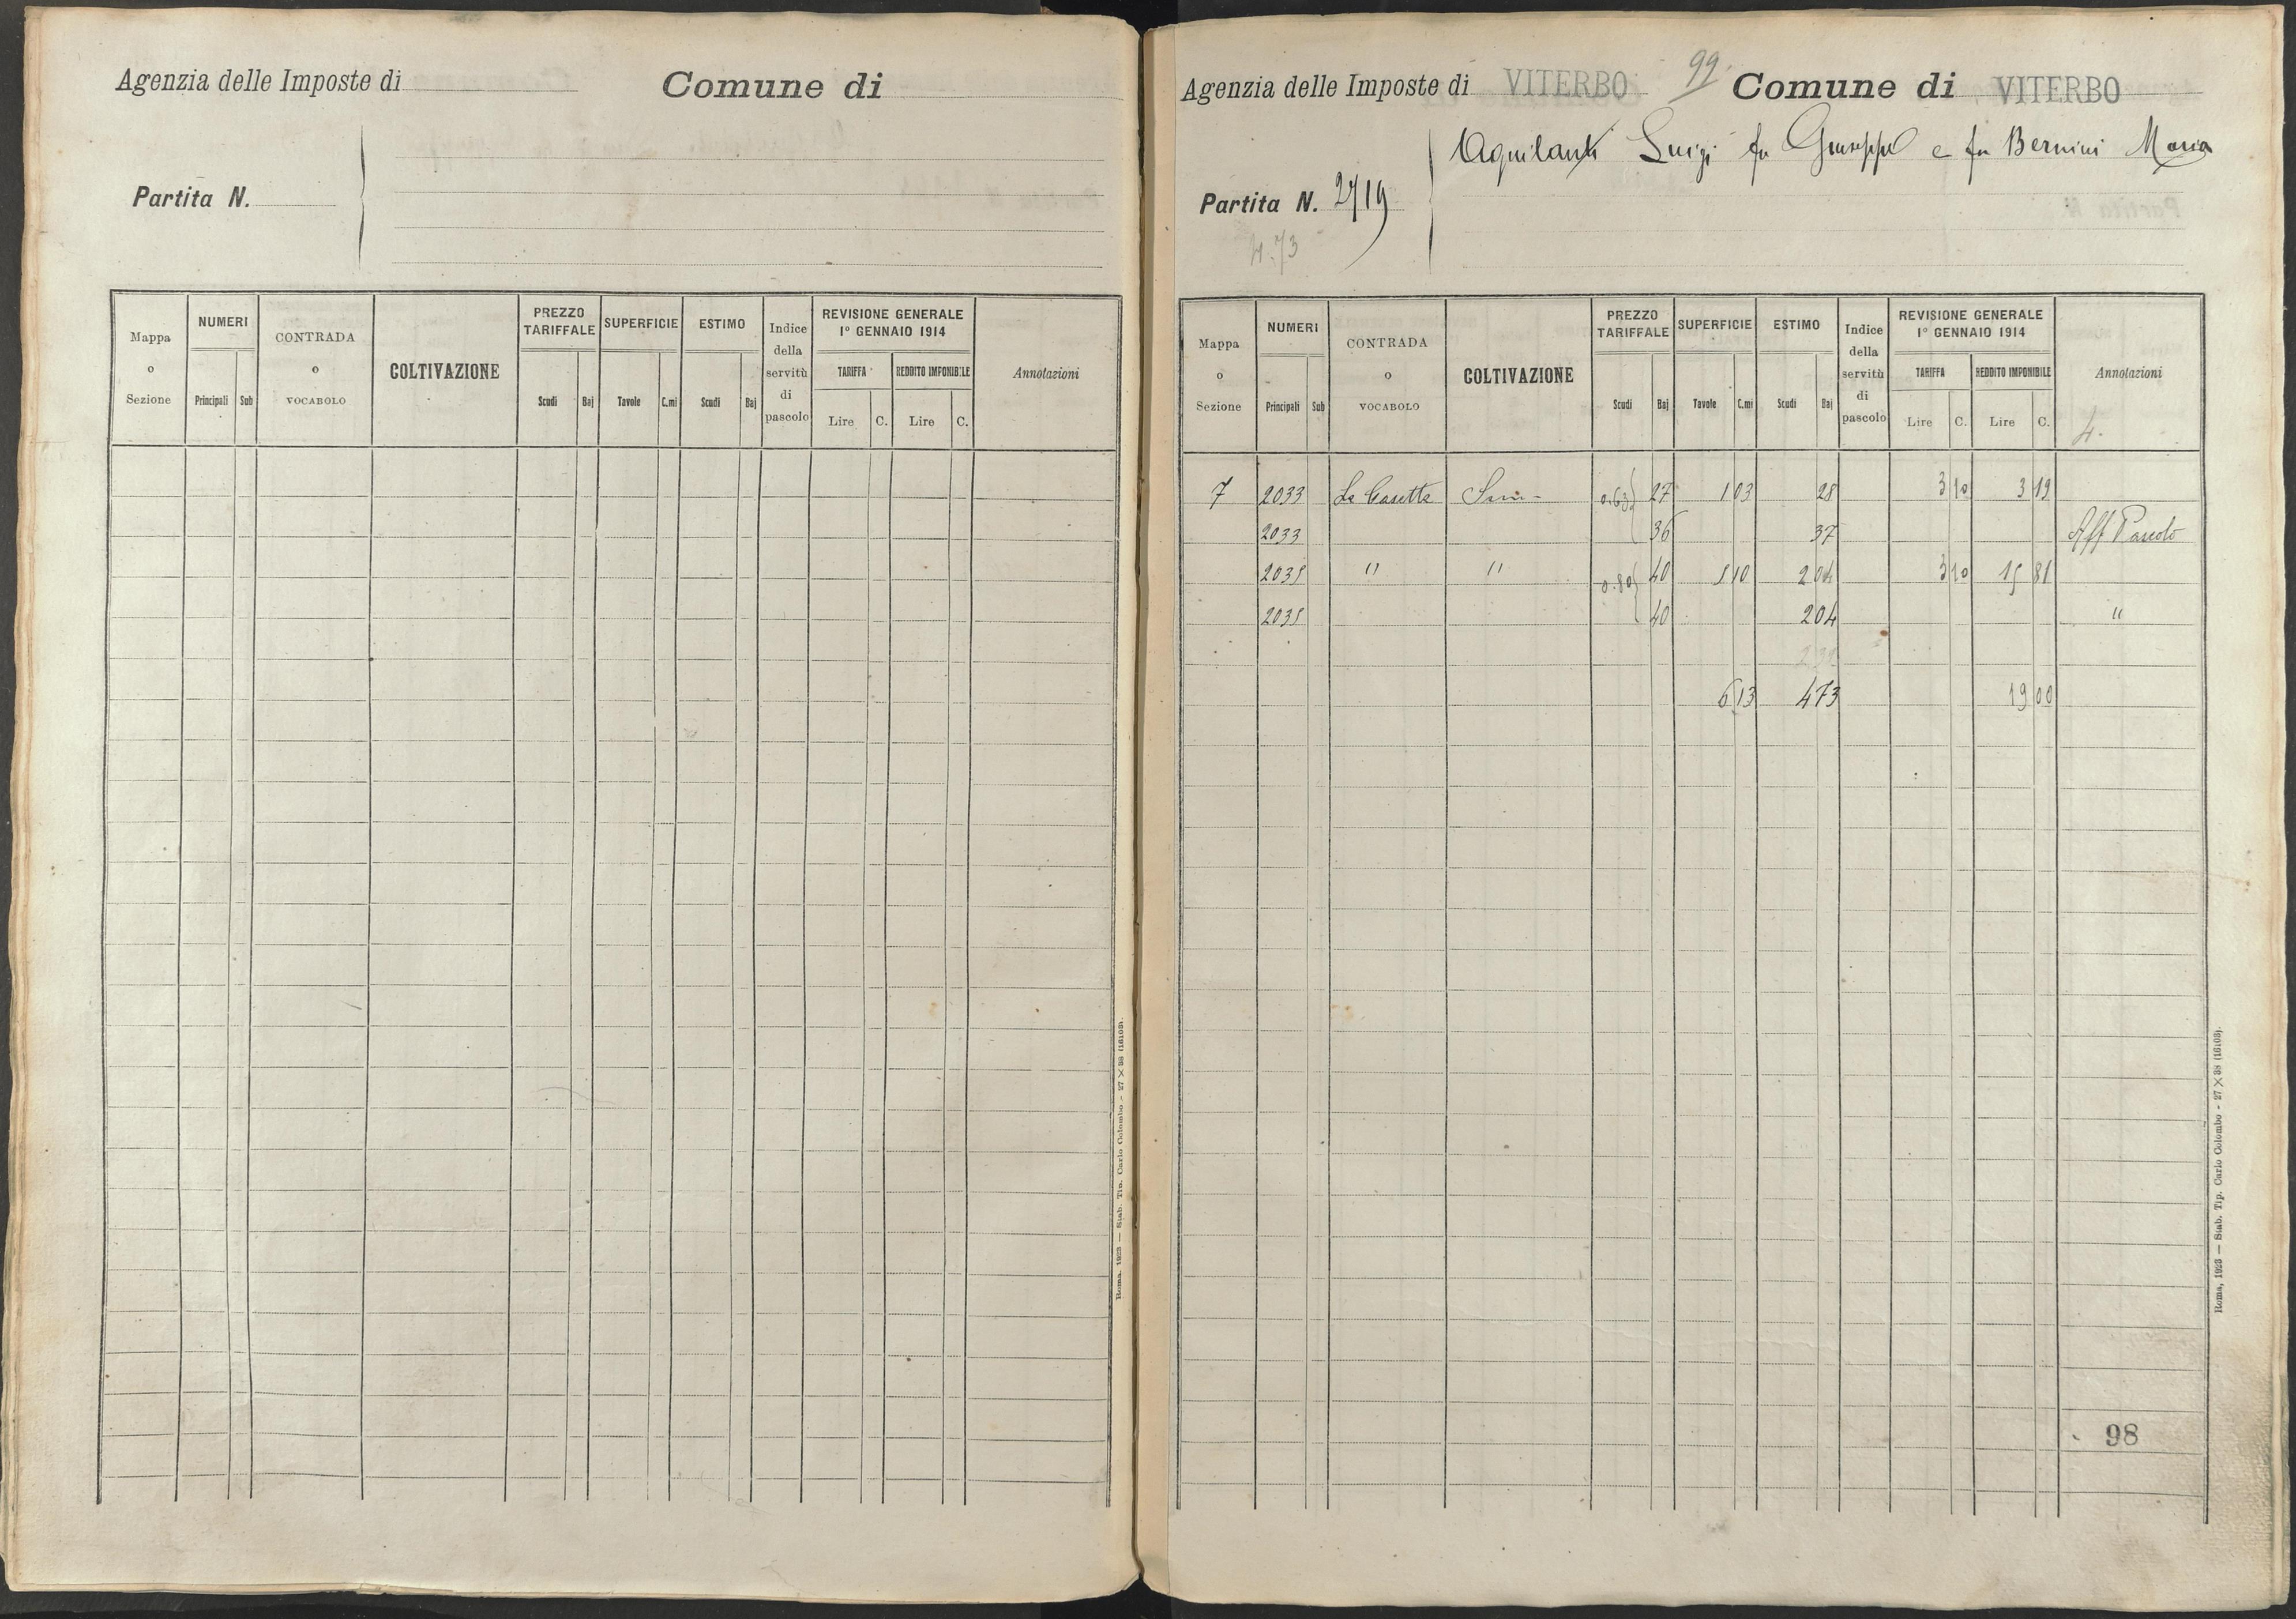 Agenzia delle Imposte di Comune di
Partita N.
Mappa o Sezione NUMERI Principali Sub CONTRADA o VOCABOLO COLTIVAZIONE PREZZO TARIFFALE Scudi Baj SUPERFICIE Tavole C.mi ESTIMO Scudi Baj Indice della servitù di pascolo REVISIONE GENERALE 1° GENNAIO 1914 TARIFFA Lire C. REDDITO IMPONIBILE Lire C. Annotazioni
Roma, 1923 — Stab. Tip. Carlo Colombo - 27 × 38 (16103).
Agenzia delle Imposte di VITERBO 99 Comune di VITERBO
Aquilanti Luigi fu Giuseppe e fu Bernini Maria
Partita N. 2719
4.73
Mappa o Sezione NUMERI Principali Sub CONTRADA o VOCABOLO COLTIVAZIONE PREZZO TARIFFALE Scudi Baj SUPERFICIE Tavole C.mi ESTIMO Scudi Baj Indice della servitù di pascolo REVISIONE GENERALE 1° GENNAIO 1914 TARIFFA Lire C. REDDITO IMPONIBILE Lire C. Annotazioni
4.
7 2033 Le Casette Sem- 0.63 27 1 03 28 3 10 3 19
2033 36 37 Aff Pascolo
2035 " " 0.80 40 5 10 2 04 3 10 15 81
2035 40 2 04 "
6 13 4 73 19 00
98
Roma, 1923 — Stab. Tip. Carlo Colombo - 27 × 38 (16103).